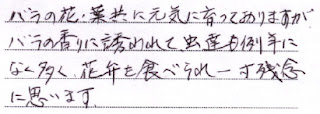 バラの花・葉共に元気に育っておりますが
バラの香りに誘われて、虫達も例年に
なく多く、花弁を食べられ一寸残念
に思います